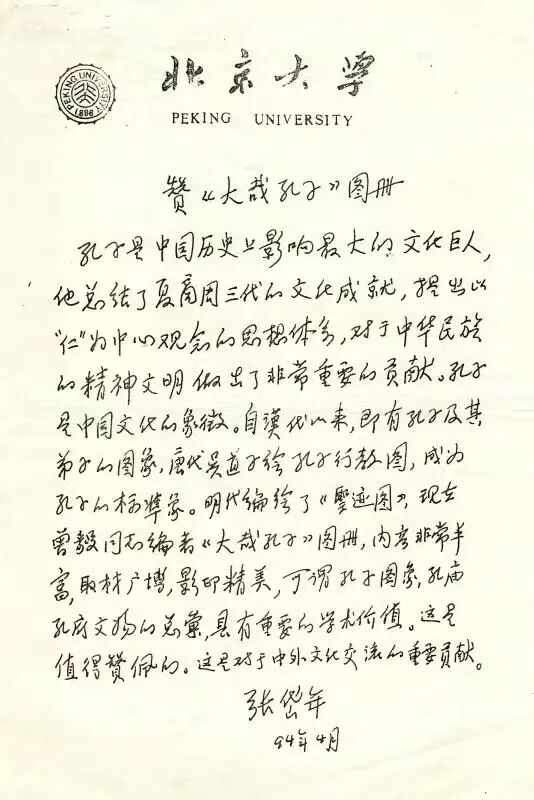 北京大学
PEKING UNIVERSITY
PEKING UNIVERSITY
1898
赞《大哉孔子》图册
孔子是中国历史上影响最大的文化巨人，
他总结了夏商周三代的文化成就，提出以
“仁”为中心观念的思想体系，对于中华民族
的精神文明做出了非常重要的贡献。孔子
是中国文化的象徵。自汉代以来，即有孔子及其
弟子的图象，唐代吴道子绘孔子行教图，成为
孔子的标准象。明代编绘了《圣迹图》，现在
曾毅同志编著《大哉孔子》图册，内容非常丰
富，取材广博，影印精美，可谓孔子图象，孔庙
孔府文物的总汇，具有重要的学术价值。这是
值得赞佩的。这是对于中外文化交流的重要贡献。
张岱年
94年4月